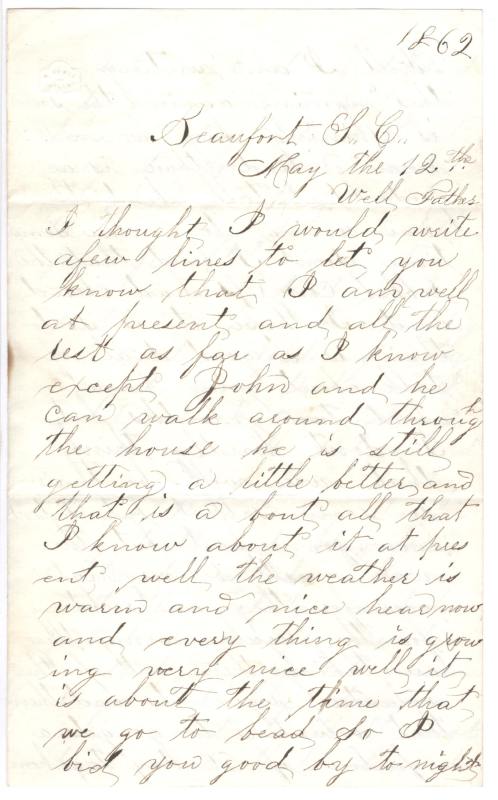 1862
Beaufort S. C.
May the 12th
Well Father
I thought I would write
afew lines to let you
know that I am well
at present and all the
rest as far as I know
except John and he
can walk around through
the house he is still
getting a little better and
that is a bout all that
I know about it at pres
ent well the weather is
warm and nice hear now
and every thing is grow
ing very nice well it
is about the time that
we go to bead So I
bid you good by to night